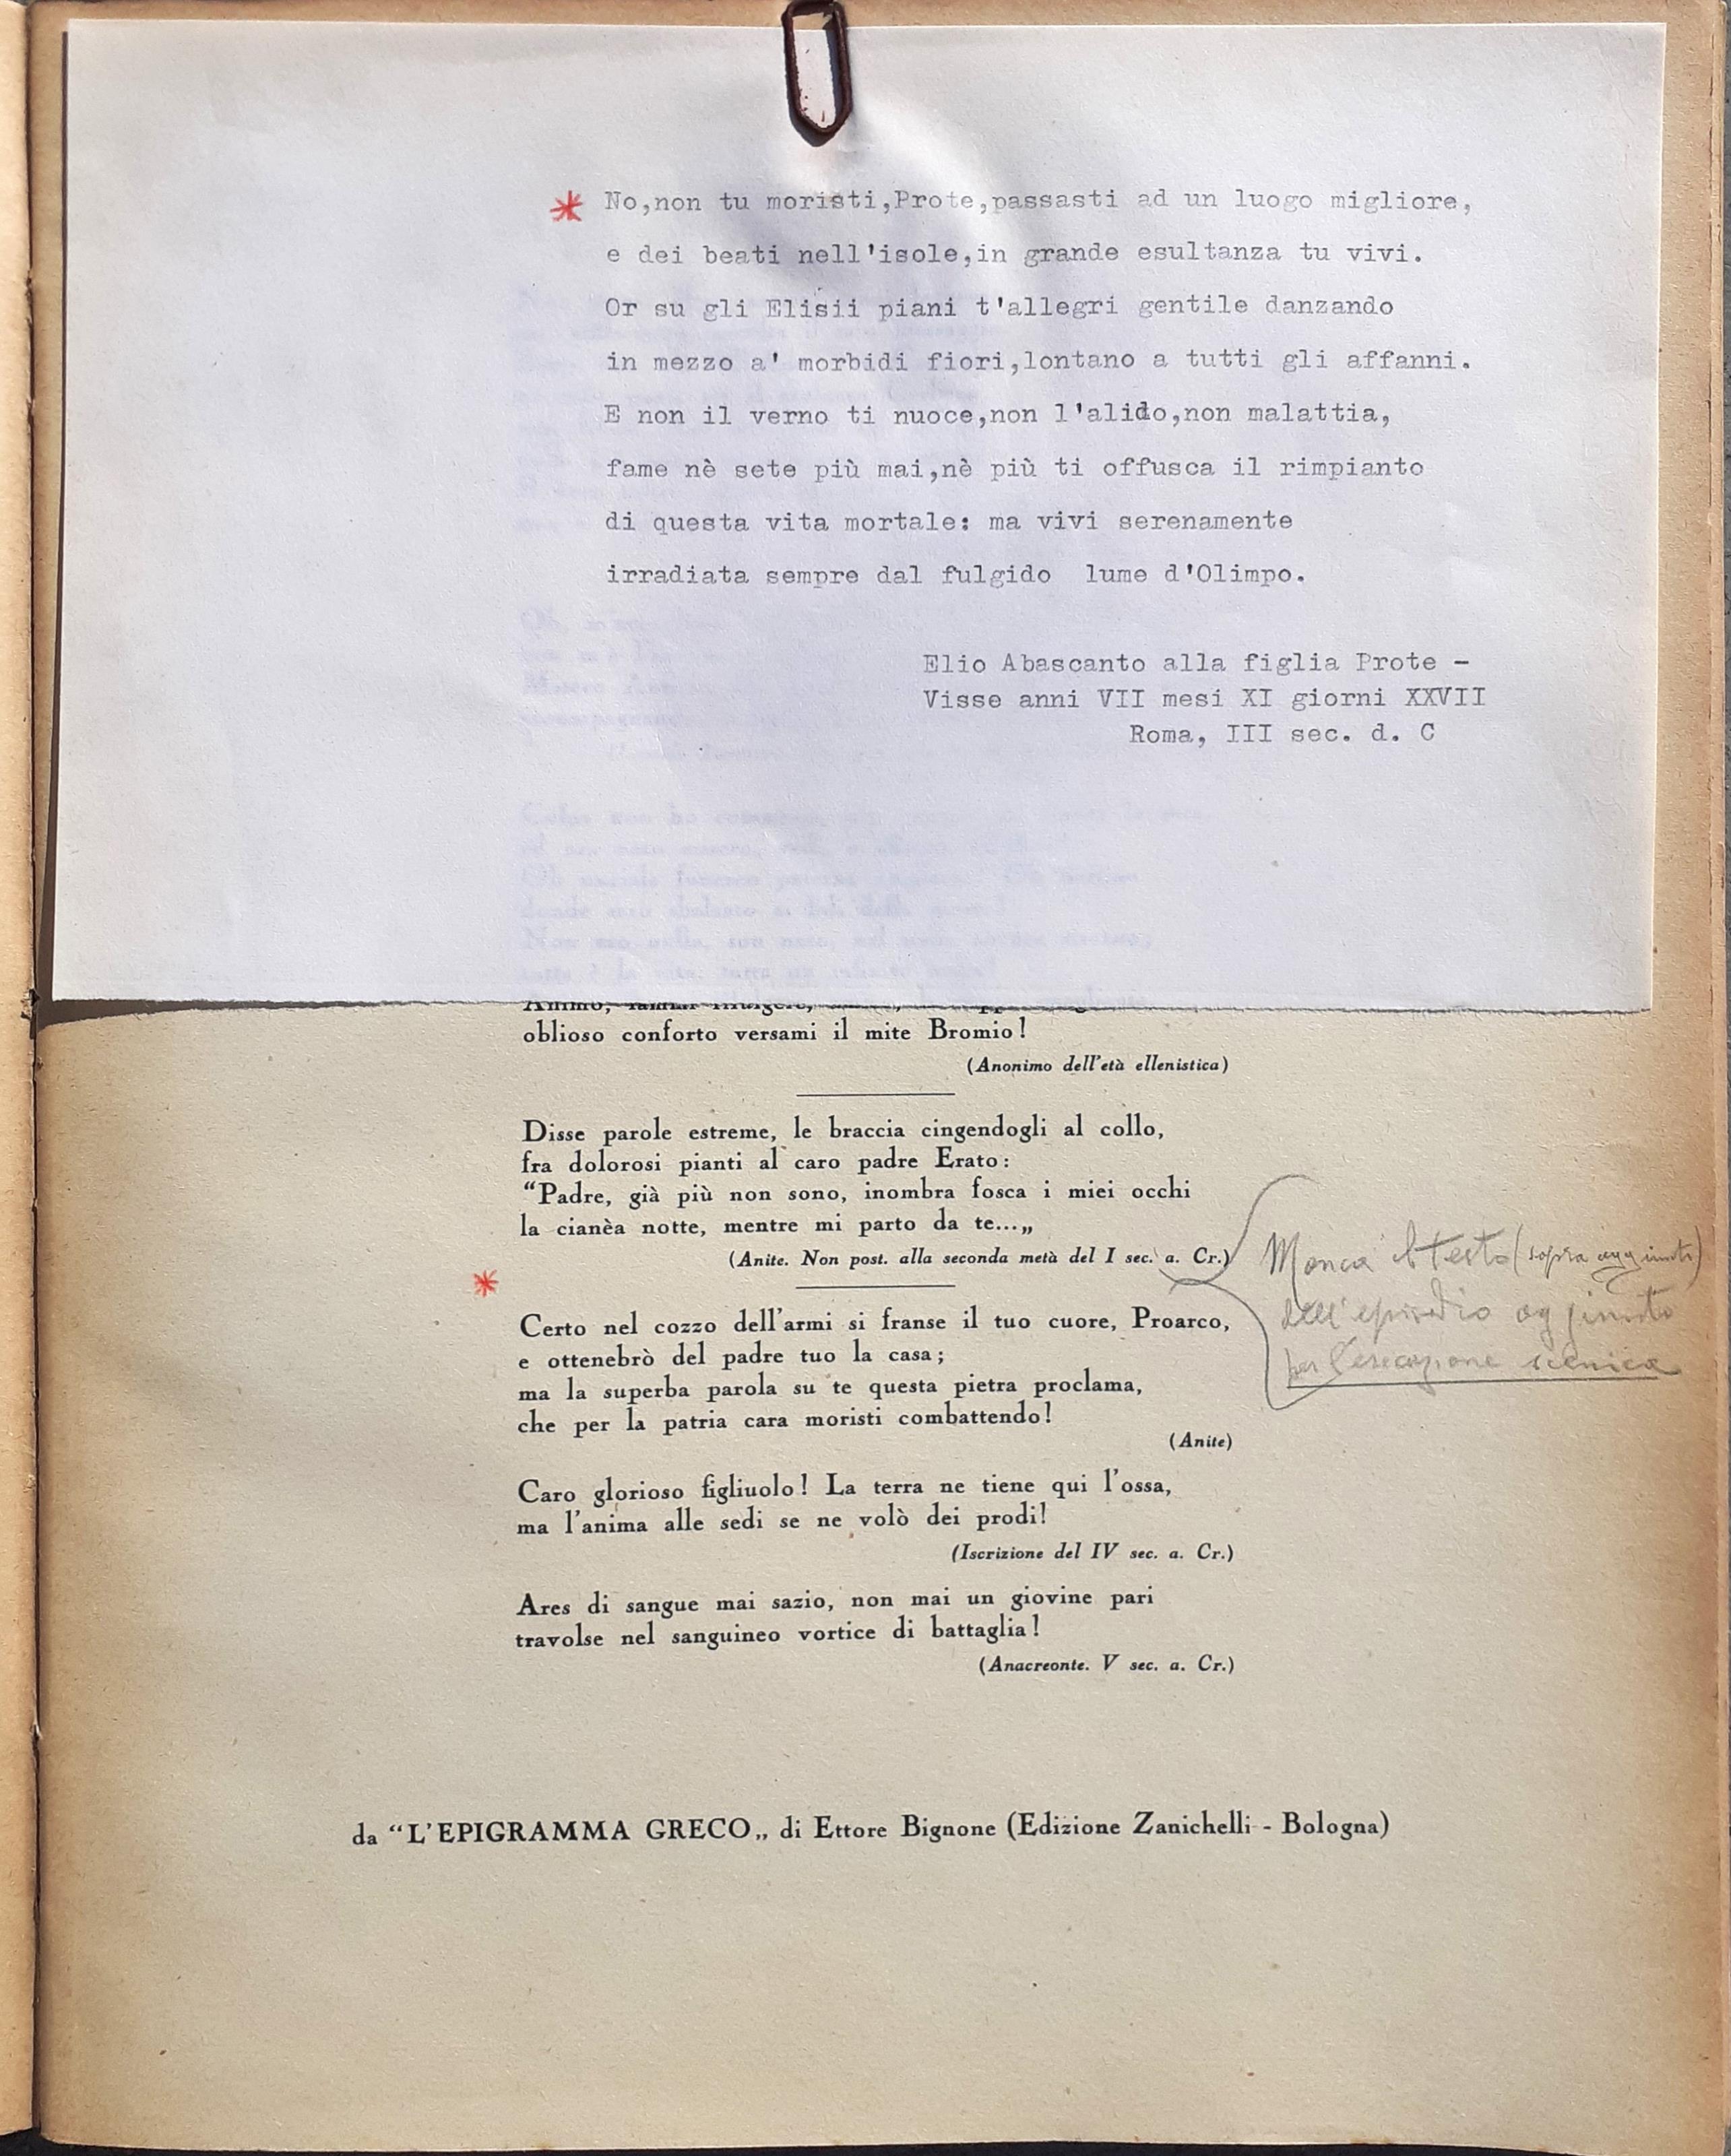 * No,non tu moristi,Prote,passasti ad un luogo migliore,
e dei beati nell'isole,in grande esultanza tu vivi.
Or su gli Elisii piani t'allegri gentile danzando
in mezzo a' morbidi fiori,lontano a tutti gli affanni.
E non il verno ti nuoce,non l'alido,non malattia,
fame nè sete più mai,nè più ti offusca il rimpianto
di questa vita mortale: ma vivi serenamente
irradiata sempre dal fulgido lume d'Olimpo.
Elio Abascanto alla figlia Prote -
Visse anni VII mesi XI giorni XXVII
Roma, III sec. d. C
oblioso conforto versami il mite Bromio!
(Anonimo dell'età ellenistica)
Disse parole estreme, le braccia cingendogli al collo,
fra dolorosi pianti al caro padre Erato:
“Padre, già più non sono, inombra fosca i miei occhi
la cianèa notte, mentre mi parto da te...„
(Anite. Non post. alla seconda metà del I sec. a. Cr.)
*
Manca il testo (sopra aggiunto)
dell'episodio aggiunto
per l'esecuzione scenica
Certo nel cozzo dell'armi si franse il tuo cuore, Proarco,
e ottenebrò del padre tuo la casa;
ma la superba parola su te questa pietra proclama,
che per la patria cara moristi combattendo!
(Anite)
Caro glorioso figliuolo! La terra ne tiene qui l'ossa,
ma l'anima alle sedi se ne volò dei prodi!
(Iscrizione del IV sec. a. Cr.)
Ares di sangue mai sazio, non mai un giovine pari
travolse nel sanguineo vortice di battaglia!
(Anacreonte. V sec. a. Cr.)
da “L'EPIGRAMMA GRECO„ di Ettore Bignone (Edizione Zanichelli - Bologna)